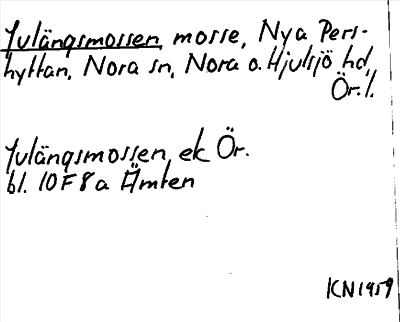 Julängsmossen, mosse, Nya Pers-
hyttan, Nora sn, Nora o. Hjulsjö hd,
Ör. l.
Julängsmossen, ek Ör.
bl. 10F8a Ämten
KN1959